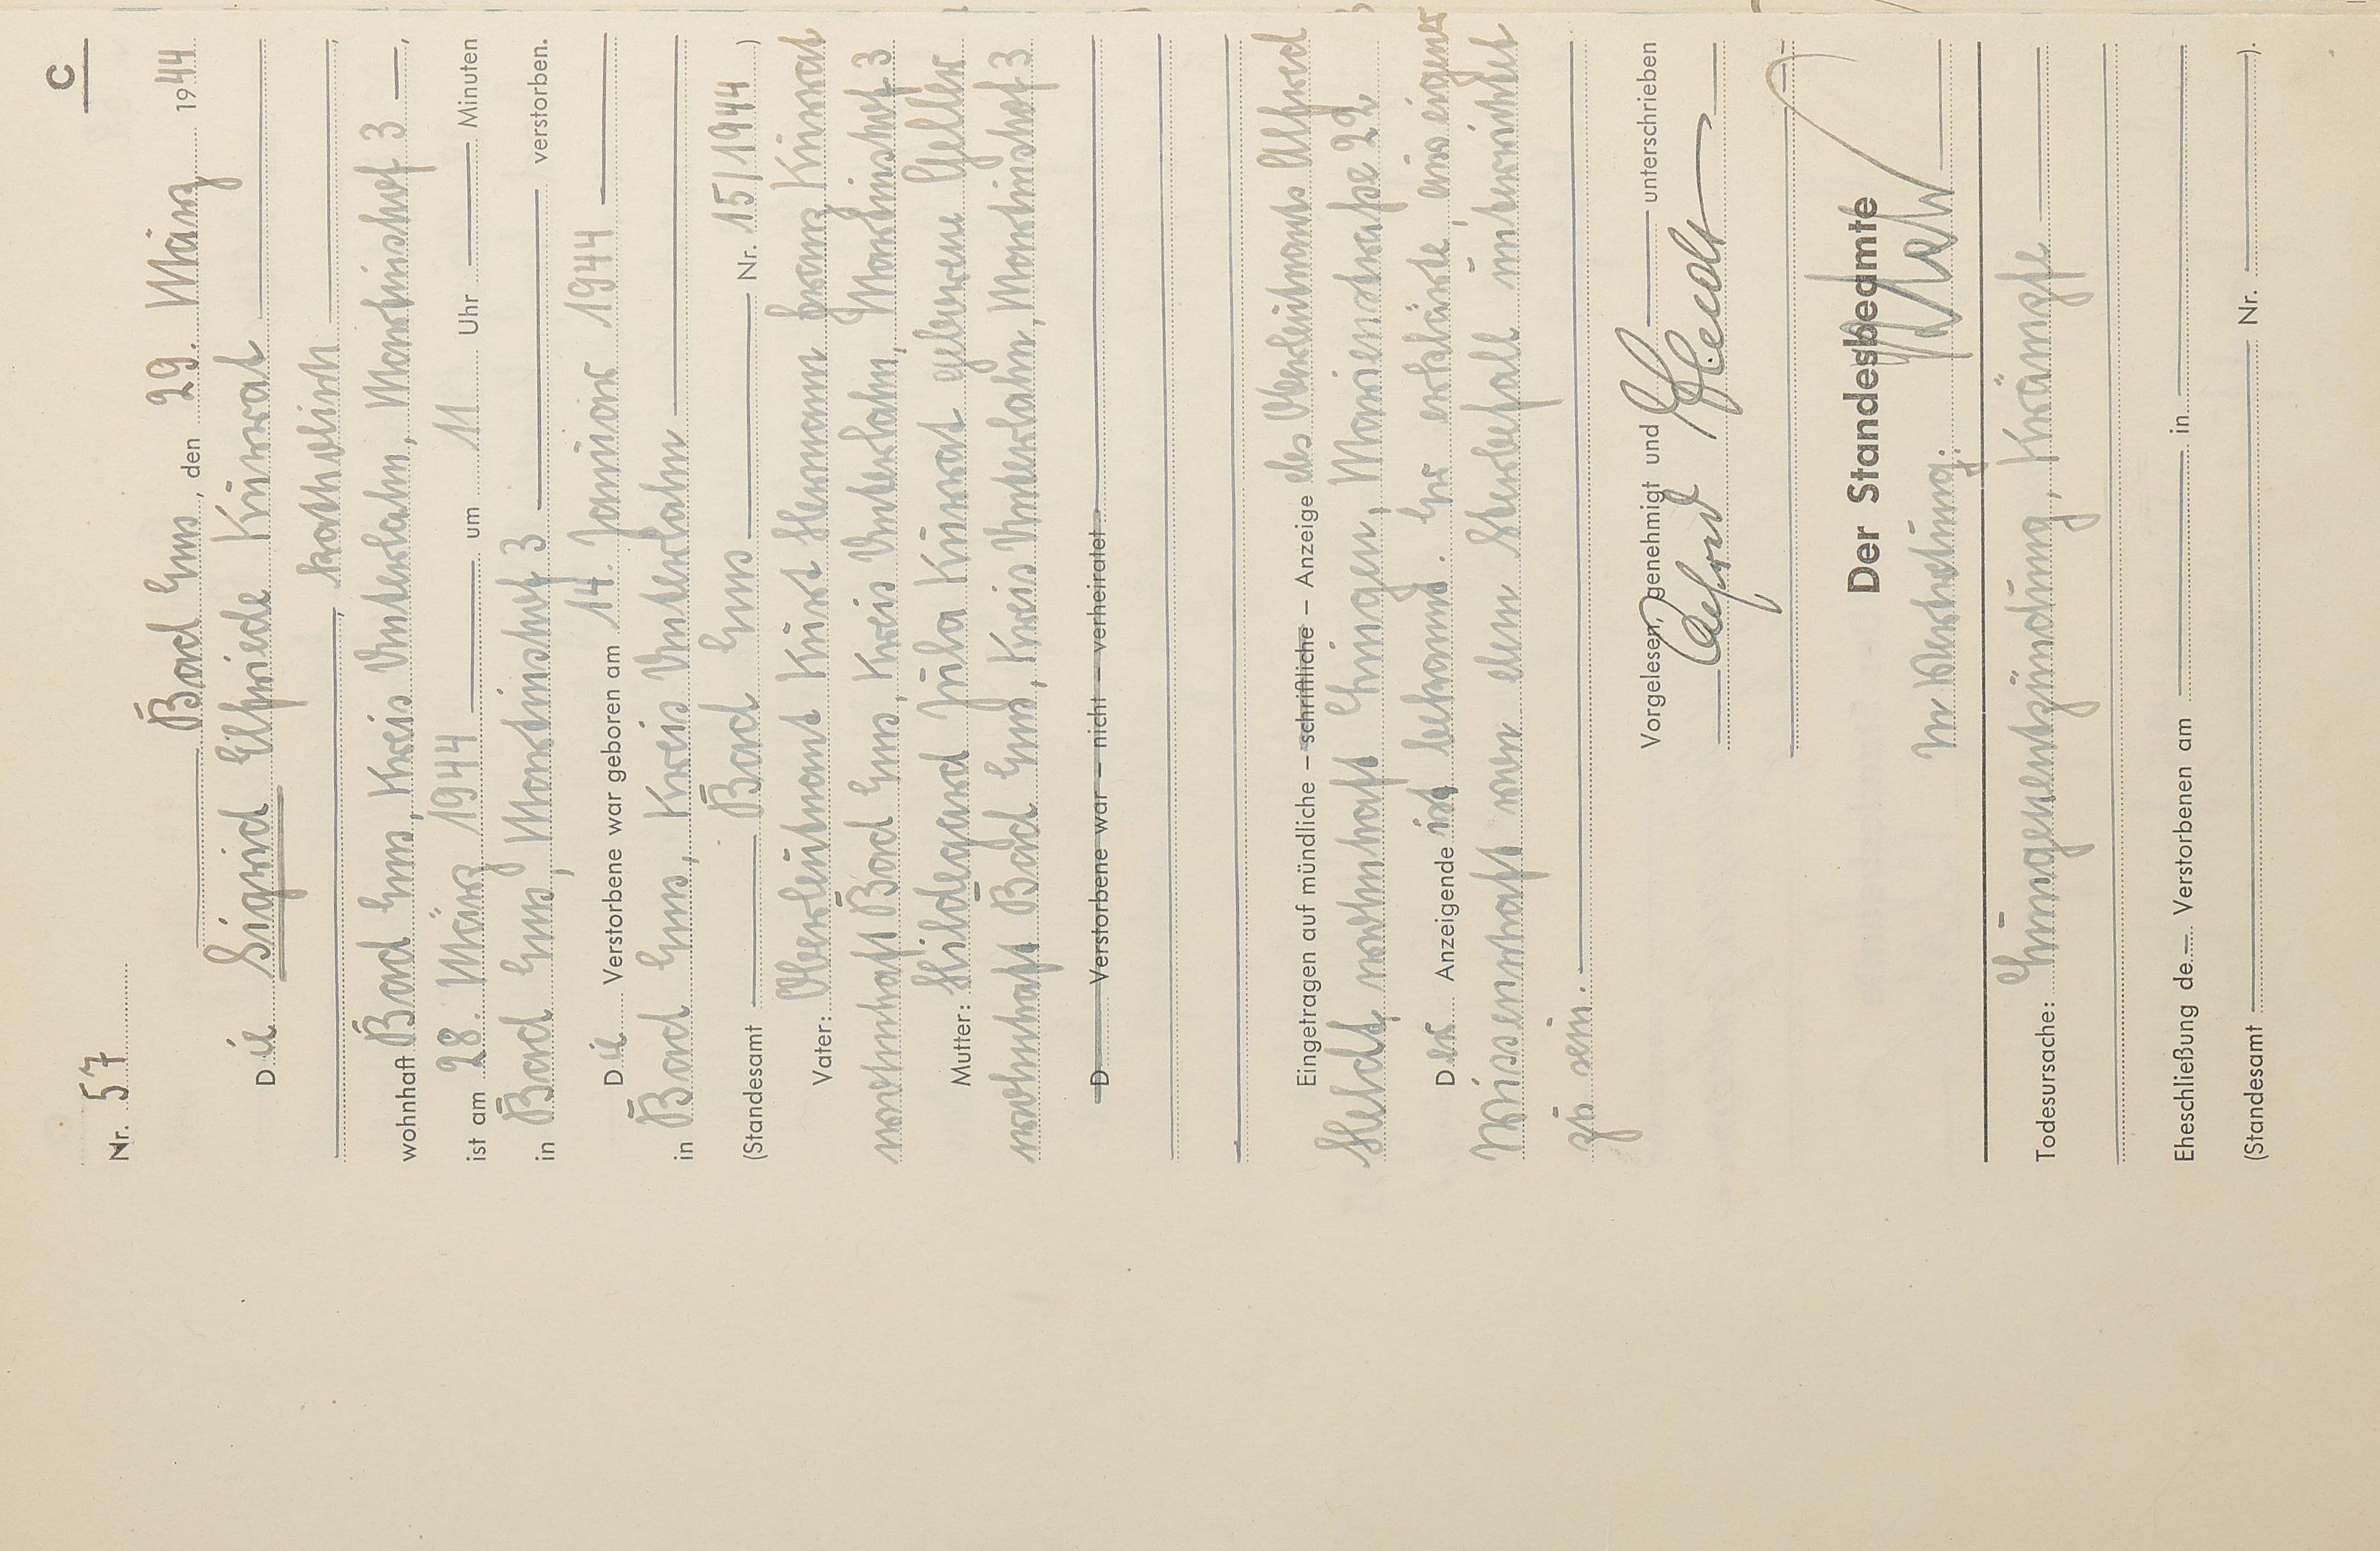 C
Nr. 57
Bad Ems, den 29. März 1944
Die Sigrid Elfriede Kunrat
, katholisch
wohnhaft Bad Ems, Kreis Unterlahn, Martinshof 3 ,
ist am 28. März 1944 um 11 Uhr Minuten
in Bad Ems, Martinshof 3 verstorben.
Die Verstorbene war geboren am 14. Januar 1944
in Bad Ems, Kreis Unterlahn
(Standesamt Bad Ems Nr. 15/1944 )
Vater: Oberleutnant Kurt Hermann Franz Kunrat
wohnhaft Bad Ems, Kreis Unterlahn, Martinshof 3
Mutter: Hildegard Jula Kunrat geborene Geller
wohnhaft Bad Ems, Kreis Unterlahn, Martinshof 3
D Verstorbene war – nicht – verheiratet.
Eingetragen auf mündliche – schriftliche – Anzeige des Oberleutnants Alfred
Heldt, wohnhaft Ehingen, Marienstraße 22
Der Anzeigende ist bekannt. Er erklärte, aus eigener
Wissenschaft von dem Sterbefall unterrichtet
zu sein.
Vorgelesen, genehmigt und unterschrieben
Alfred Heldt
Der Standesbeamte
In Vertretung:
Todesursache: Lungenentzündung, Krämpfe
Eheschließung de Verstorbenen am in
(Standesamt Nr. ).